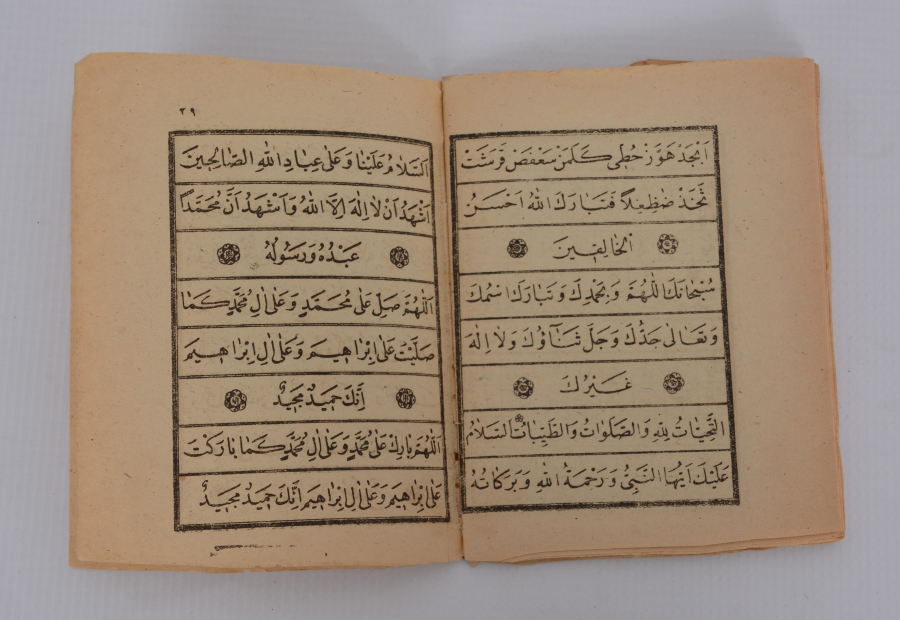 اَبْجَدْ هَوَّزْ حُطِّى كَلَمَنْ سَعْفَصْ قَرَشَتْ
ثَخَذْ ضَظِغِلاً فَتَبَارَكَ اللهُ اَحْسَنُ
الْخَالِقِينَ
سُبْحَانَكَ اللّٰهُمَّ وَبِحَمْدِكَ وَتَبَارَكَ اسْمُكَ
وَتَعَالٰى جَدُّكَ وَجَلَّ ثَنَاؤُكَ وَلَا اِلٰهَ
غَيْرُكَ
اَلتَّحِيَّاتُ لِلّٰهِ وَالصَّلَوَاتُ وَالطَّيِّبَاتُ اَلسَّلَامُ
عَلَيْكَ اَيُّهَا النَّبِىُّ وَرَحْمَةُ اللهِ وَبَرَكَاتُهُ
٣٩
اَلسَّلَامُ عَلَيْنَا وَعَلٰى عِبَادِ اللهِ الصَّالِحِينَ
اَشْهَدُ اَنْ لَا اِلٰهَ اِلَّا اللهُ وَاَشْهَدُ اَنَّ مُحَمَّدًا
عَبْدُهُ وَرَسُولُهُ
اَللّٰهُمَّ صَلِّ عَلٰى مُحَمَّدٍ وَعَلٰى اٰلِ مُحَمَّدٍ كَمَا
صَلَّيْتَ عَلٰى اِبْرَاهِيمَ وَعَلٰى اٰلِ اِبْرَاهِيمَ
اِنَّكَ حَمِيدٌ مَجِيدٌ
اَللّٰهُمَّ بَارِكْ عَلٰى مُحَمَّدٍ وَعَلٰى اٰلِ مُحَمَّدٍ كَمَا بَارَكْتَ
عَلٰى اِبْرَاهِيمَ وَعَلٰى اٰلِ اِبْرَاهِيمَ اِنَّكَ حَمِيدٌ مَجِيدٌ